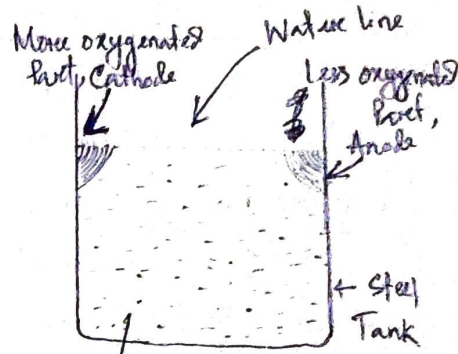 More oxygenated
Part, Cathode
Water line
Less oxygenated
Part,
Anode
← Steel
Tank